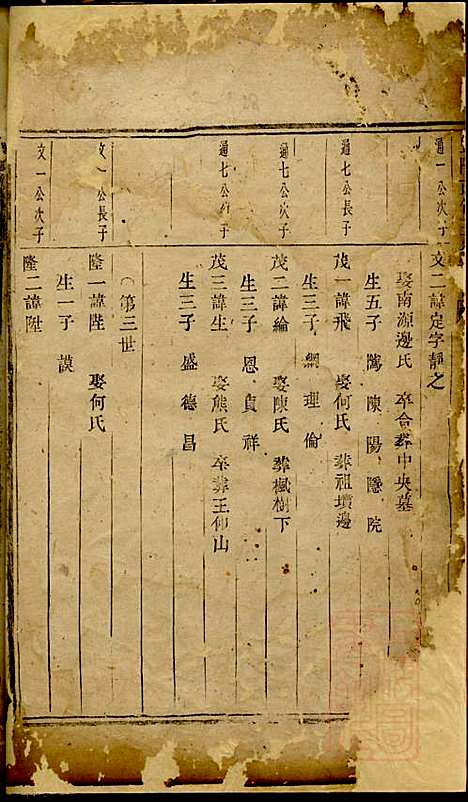 通一公次子
文二諱定字靜之
娶南源邊氏 卒合葬中央墓
生五子 陳 陽 隱 院
通七公長子
茂一諱飛 娶何氏 葬祖墳邊
生三子 綱 理 倫
通七公次子
茂二諱綸 娶陳氏 葬楓樹下
生三子 恩 貞 祥
通七公 子
茂三諱生 娶熊氏 卒葬王仰山
生三子 盛 德 昌
第三世
文一公長子
隆一諱陛 娶何氏
生一子 謨
文一公次子
隆二諱陞